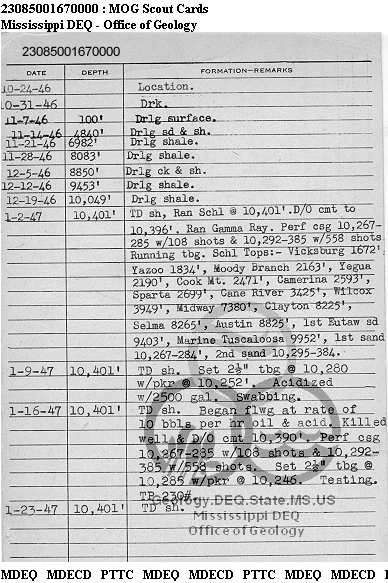 23085001670000 : MOG Scout Cards
Mississippi DEQ - Office of Geology
23085001670000
DATE DEPTH FORMATION—REMARKS
10-24-46 Location.
0-31-46 Drk.
11-7-46 100' Drlg surface.
11-14-46 4840' Drlg sd & sh.
11-21-46 6982' Drlg shale.
11-28-46 8083' Drlg shale.
12-5-46 8850' Drlg ck & sh.
12-12-46 9453' Drlg shale.
12-19-46 10,049' Drlg shale.
1-2-47 10,401' TD sh, Ran Schl @ 10,401'.D/O cmt to
10,396'. Ran Gamma Ray. Perf csg 10,267-
285 w/108 shots & 10,292-385 w/558 shots
Running tbg. Schl Tops:- Vicksburg 1672'
Yazoo 1834', Moody Branch 2163', Yegua
2190', Cook Mt. 2471', Camerina 2593',
Sparta 2699', Cane River 3425', Wilcox
3949', Midway 7380', Clayton 8225',
Selma 8265', Austin 8825', 1st Eutaw sd
9403', Marine Tuscaloosa 9952', 1st sand
10,267-284', 2nd sand 10,295-384.
1-9-47 10,401' TD sh. Set 2½" tbg @ 10,280
w/pkr @ 10,252'. Acidized
w/2500 gal. Swabbing.
1-16-47 10,401' TD sh. Began flwg at rate of
10 bbls per hr oil & acid. Killed
well & D/O cmt 10,390'. Perf csg
10,267-285 w/108 shots & 10,292-
385 w/558 shots. Set 2½" tbg @
10,285 w/pkr @ 10,246. Testing.
TP 230#.
1-23-47 10,401' TD sh.
Geology.DEQ.State.MS.US
Mississippi DEQ
Office of Geology
MDEQ MDECD PTTC MDEQ MDECD PTTC MDEQ MDECD